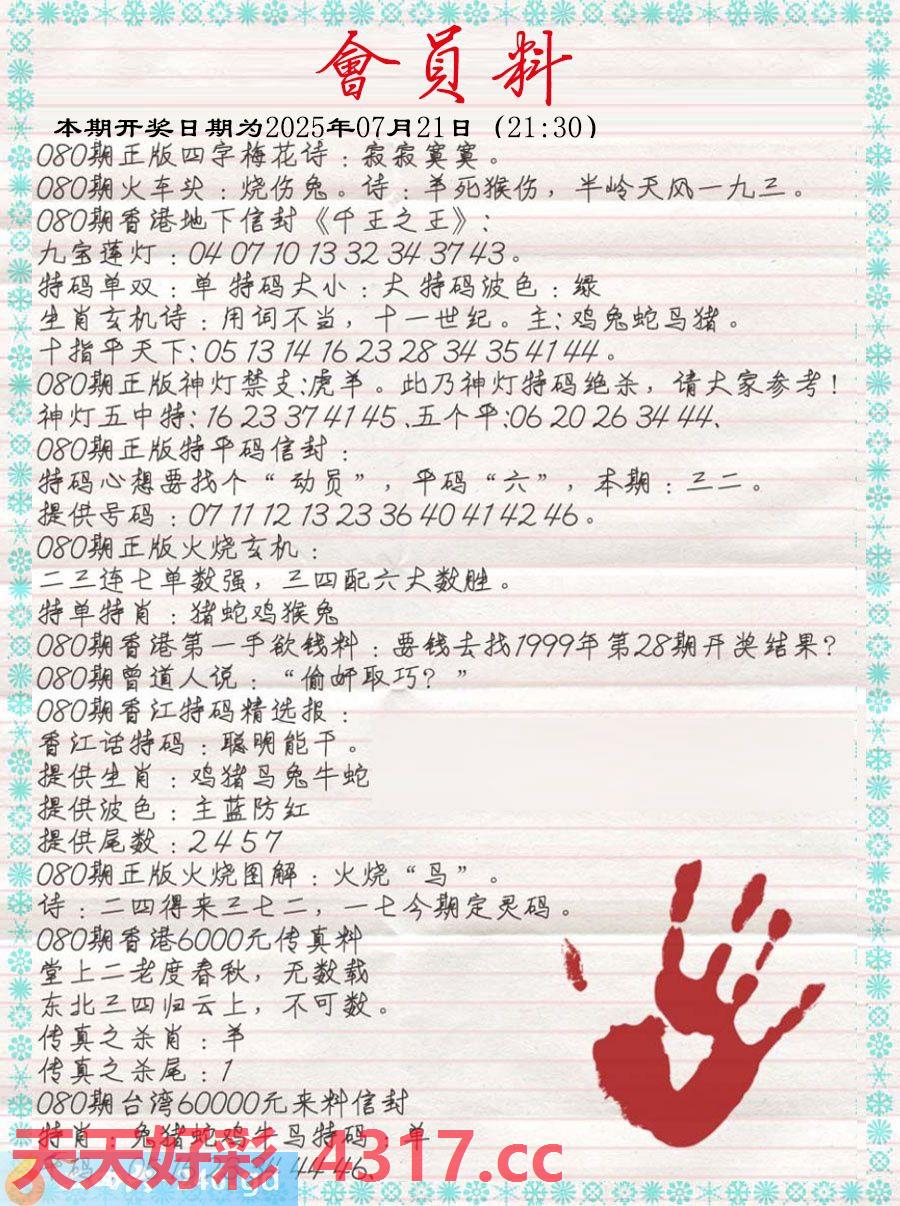 會員料
本期开奖日期为2025年07月21日（21:30）
080期正版四字梅花诗：寂寂寞寞。
080期火车头：烧伤兔。诗：羊死猴伤，半岭天风一九三。
080期香港地下信封《千王之王》：
九宝莲灯：04 07 10 13 32 34 37 43。
特码单双：单 特码大小：大 特码波色：绿
生肖玄机诗：用词不当，十一世纪。主：鸡兔蛇马猪。
十指平天下：05 13 14 16 23 28 34 35 41 44。
080期正版神灯禁支：虎羊。此乃神灯特码绝杀，请大家参考！
神灯五中特：16 23 37 41 45、五个平：06 20 26 34 44、
080期正版特平码信封：
特码心想要找个“动员”，平码“六”，本期：三二。
提供号码：07 11 12 13 23 36 40 41 42 46。
080期正版火烧玄机：
二三连七单数强，三四配六大数胜。
特单特肖：猪蛇鸡猴兔
080期香港第一手欲钱料：要钱去找1999年第28期开奖结果？
080期曾道人说：“偷奸取巧？”
080期香江特码精选报：
香江话特码：聪明能干。
提供生肖：鸡猪马兔牛蛇
提供波色：主蓝防红
提供尾数：2 4 5 7
080期正版火烧图解：火烧“鸟”。
诗：二四得来三七二，一七今期定灵码。
080期香港6000元传真料
堂上二老度春秋，无数载
东北三四归云上，不可数。
传真之杀肖：羊
传真之杀尾：1
080期台湾60000元来料信封
特肖：兔猪蛇鸡牛马特码：单
天天好彩 4317.cc
44 46、